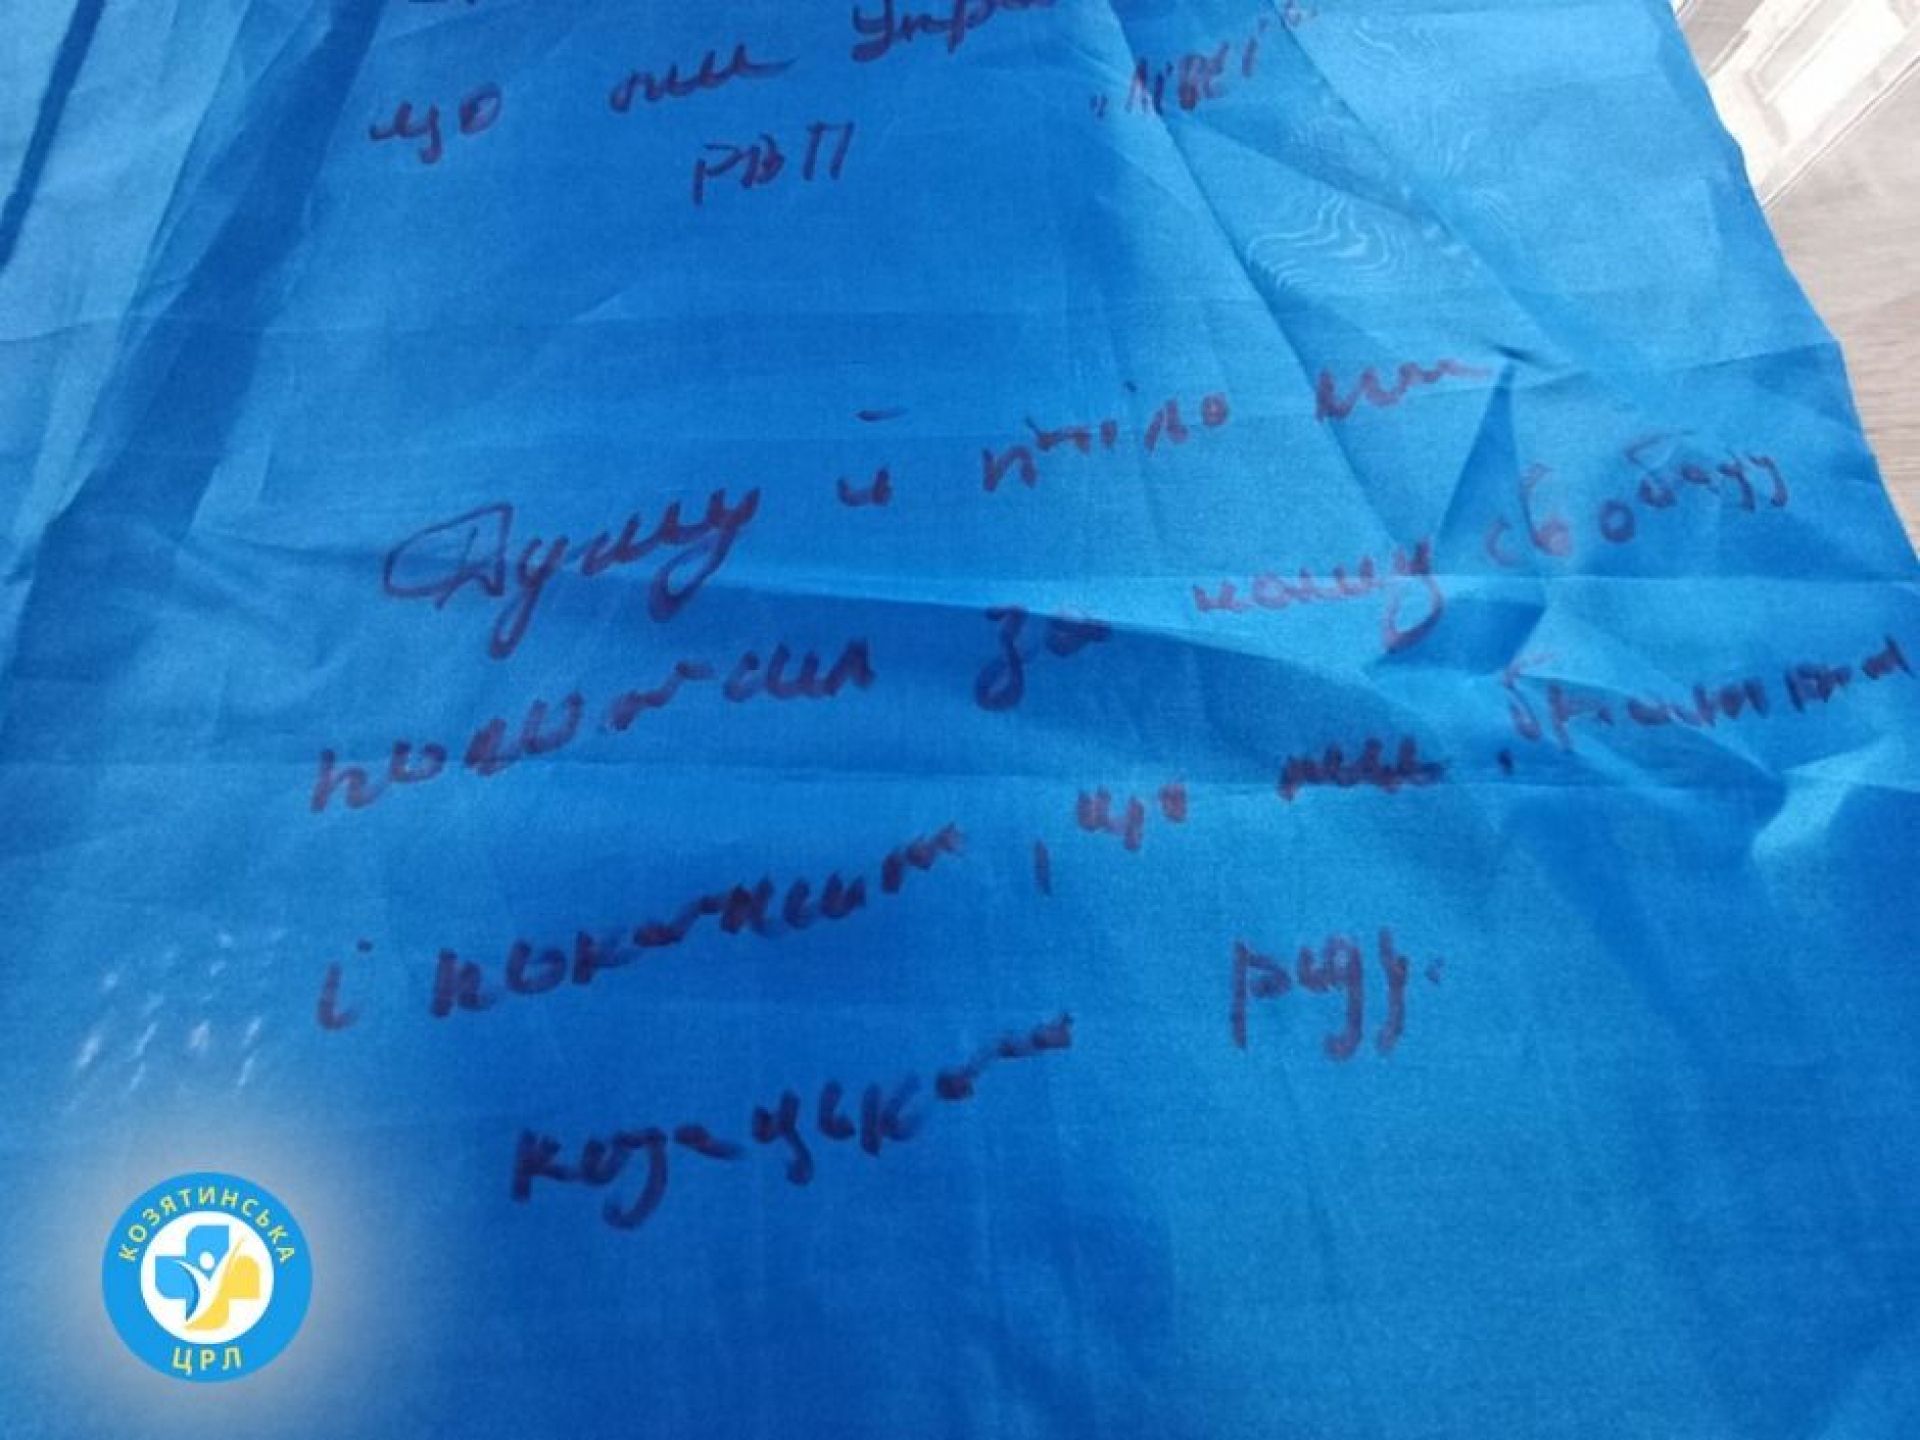 що ми
РВП
Душу й тіло ми
положим за нашу свободу
і покажем, що ми, браття
козацького роду.
КОЗЯТИНСЬКА
ЦРЛ